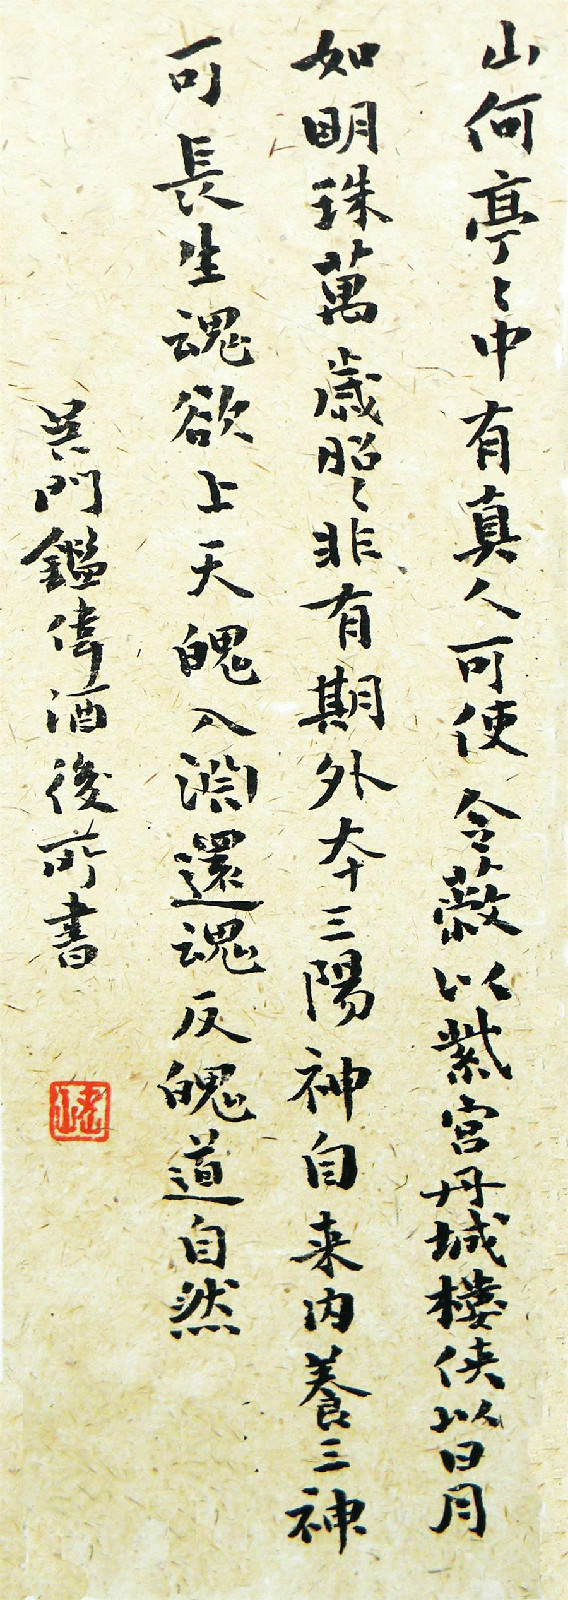 山何亭〻中有真人可使令蔽以紫宮丹城樓俠以日月
如明珠萬歲昭〻非有期外本三陽神自来内養三神
可長生魂欲上天魄入淵還魂反魄道自然
吳門鑑偉酒後所書